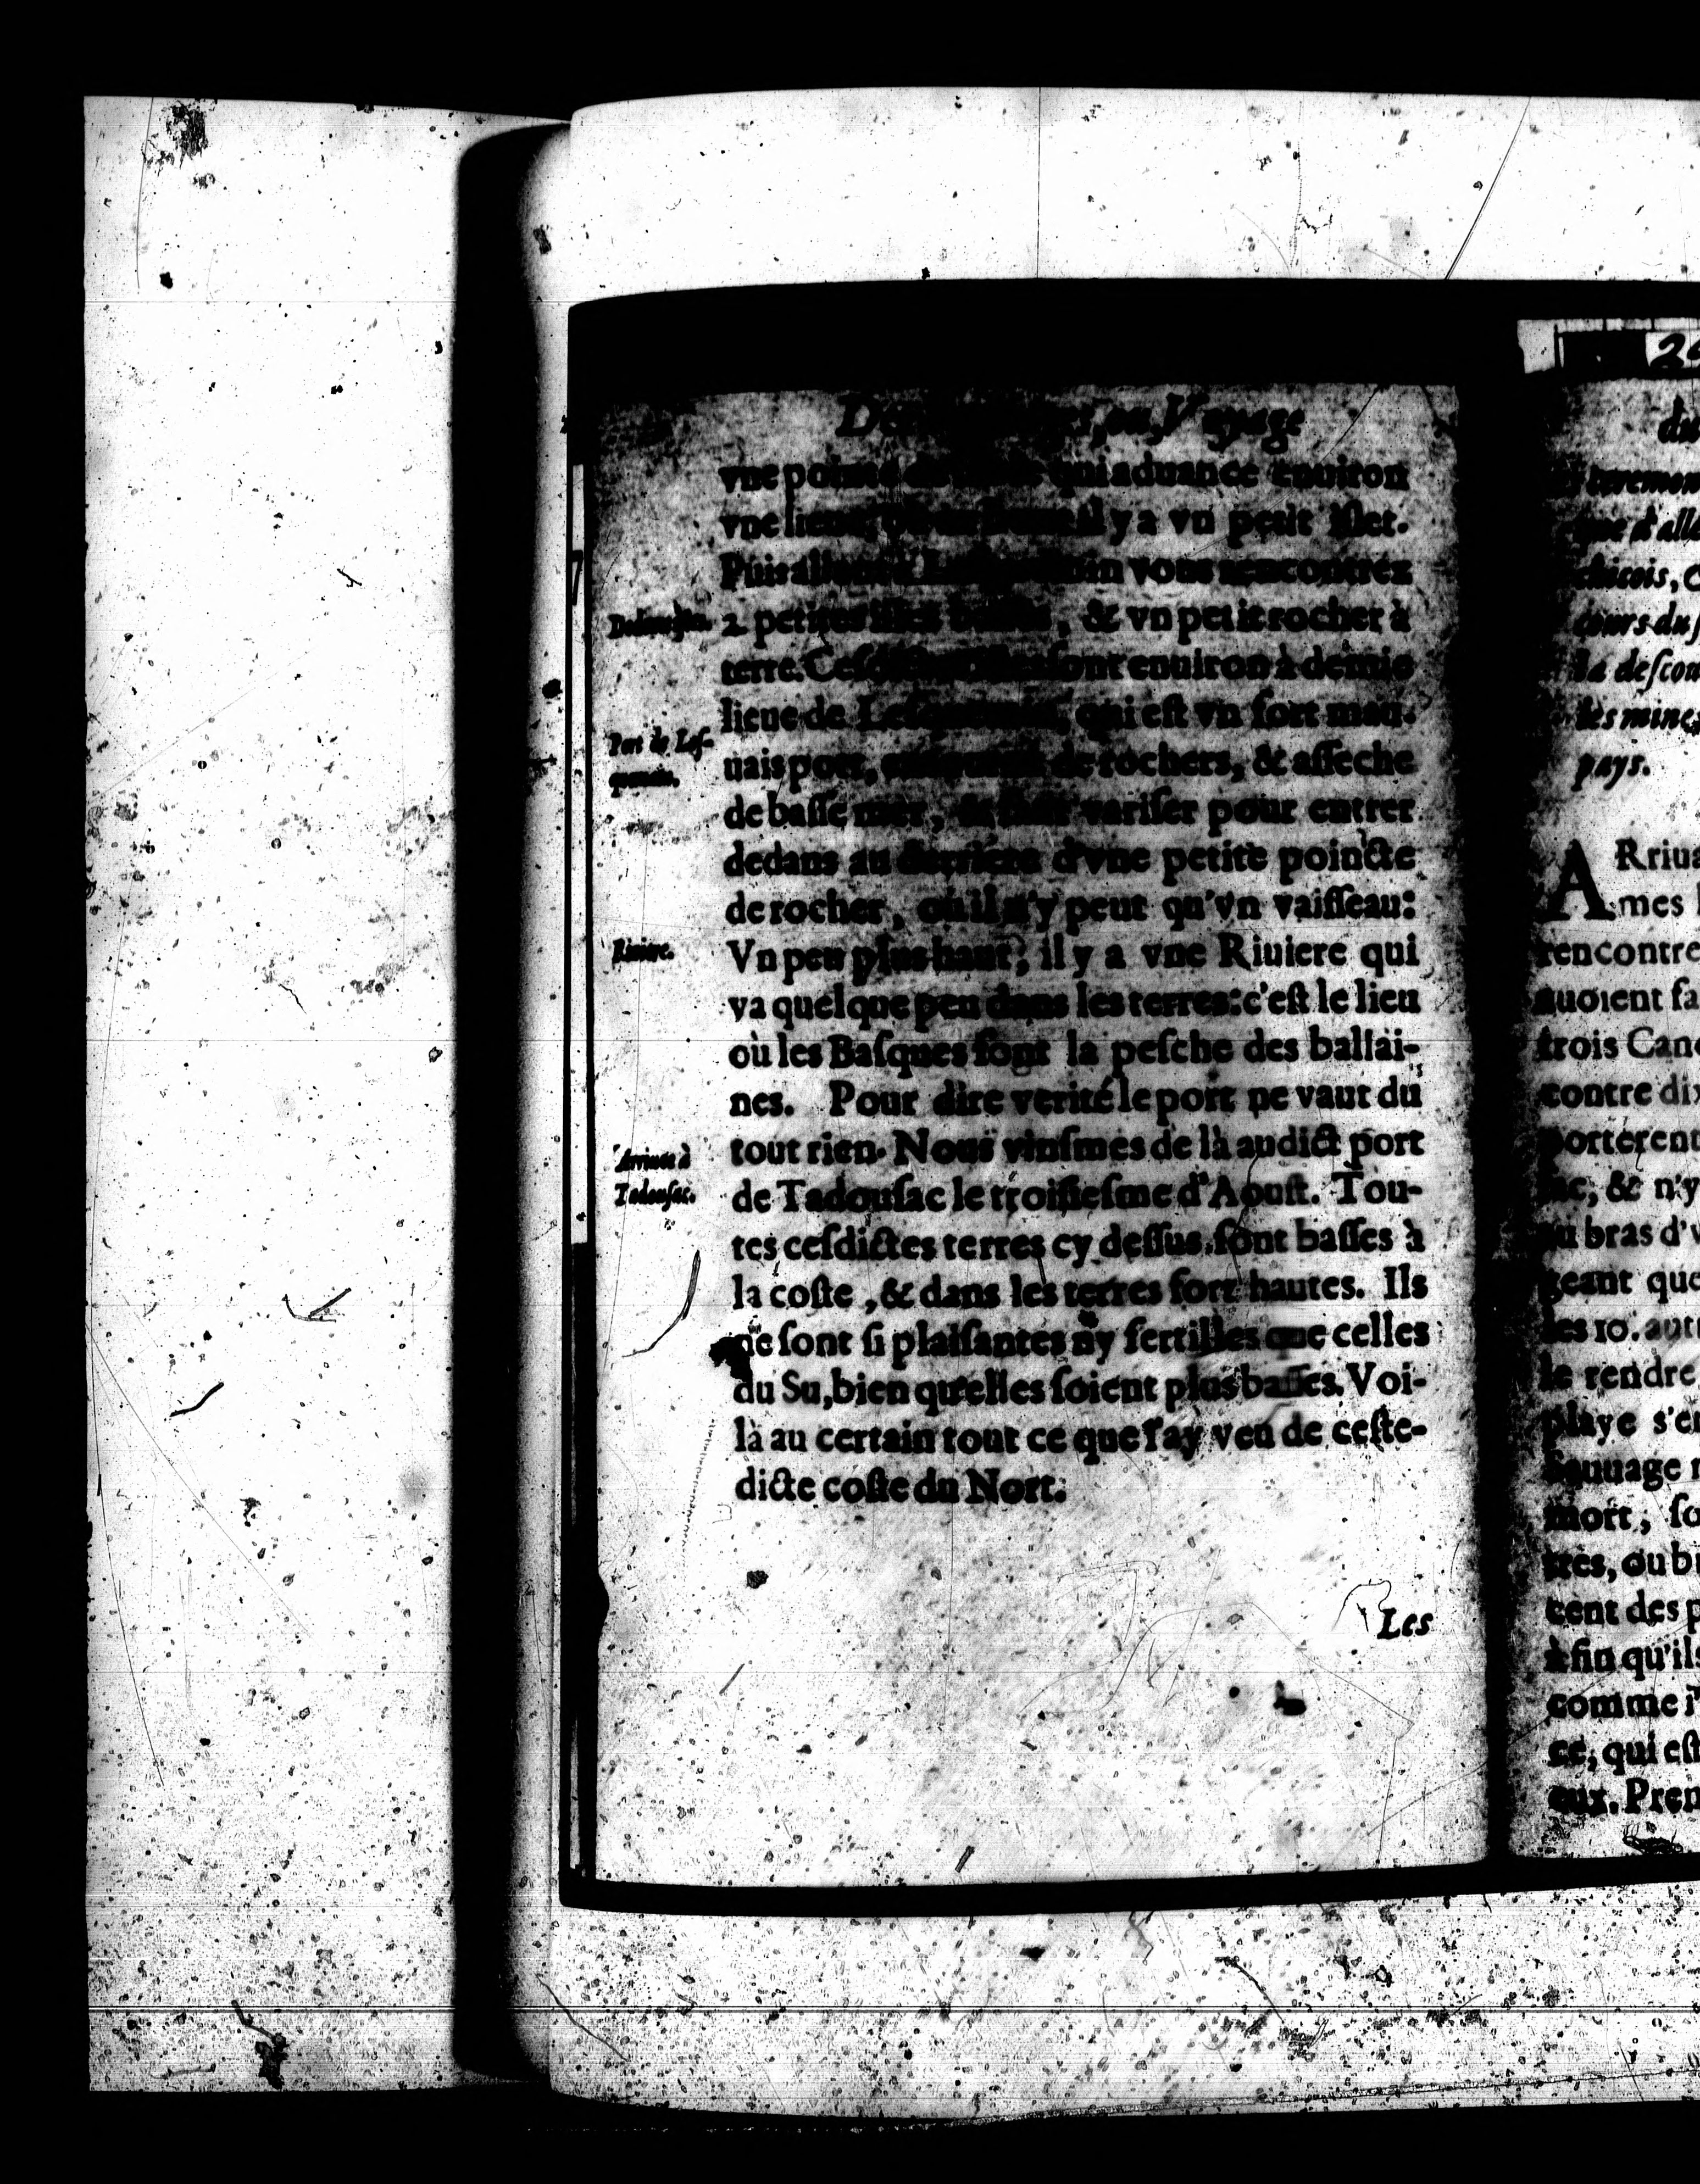 Des Sauuages, ou Voyage
vne poincte de sable qui aduance enuiron
vne lieue, il y a vn petit islet.
Puis allant à vous rencontrez
2. petites isles basses, & vn petit rocher à
terre. Cesdictes sont enuiron à demie
lieue de Lesquemin, qui est vn fort mau-
uais port, de rochers, & asseche
de basse mer, & variser pour entrer
dedans au derriere d'vne petite poincte
de rocher, où il n'y peut qu'vn vaisseau:
Vn peu plus haut, il y a vne Riuiere qui
va quelque peu dans les terres: c'est le lieu
où les Basques font la pesche des ballai-
nes. Pour dire verité le port ne vaut du
tout rien. Nous vinsmes de là audict port
de Tadousac le troisiesme d'Aoust. Tou-
tes cesdictes terres cy dessus sont basses à
la coste, & dans les terres fort hautes. Ils
ne sont si plaisantes ny fertilles que celles
du Su, bien qu'elles soient plus basses. Voi-
là au certain tout ce que i'ay veu de ceste-
dicte coste du Nort.
Les
Port de Les-
quemin.
Riuiere.
Arriuee à
Tadousac.
du
ceremon
que d'alle
chicois,
cours du
la descou
des mines
pays.
ARriua
mes
rencontre
auoient fa
trois Cano
contre dix
porterent
& n'y
au bras d'v
geant que
les 10. autr
le rendre
playe s'en
Sauuage
mort, so
tres, ou
cent des p
à fin qu'ils
comme i'
ce, qui est
eux. Prem